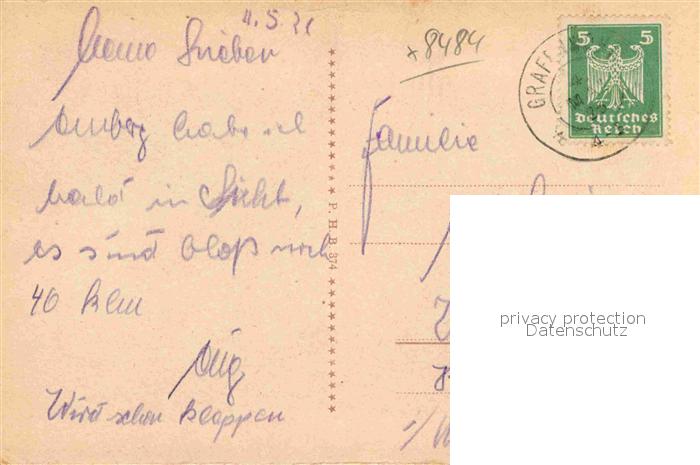 Meine Lieben
Amberg habe ich
bald in Sicht,
es sind bloß noch
40 Klm
Wird schon klappen
P. H. B. 374
×8484
5 5
Deutsches
Reich
GRAFE
Familie
privacy protection
Datenschutz